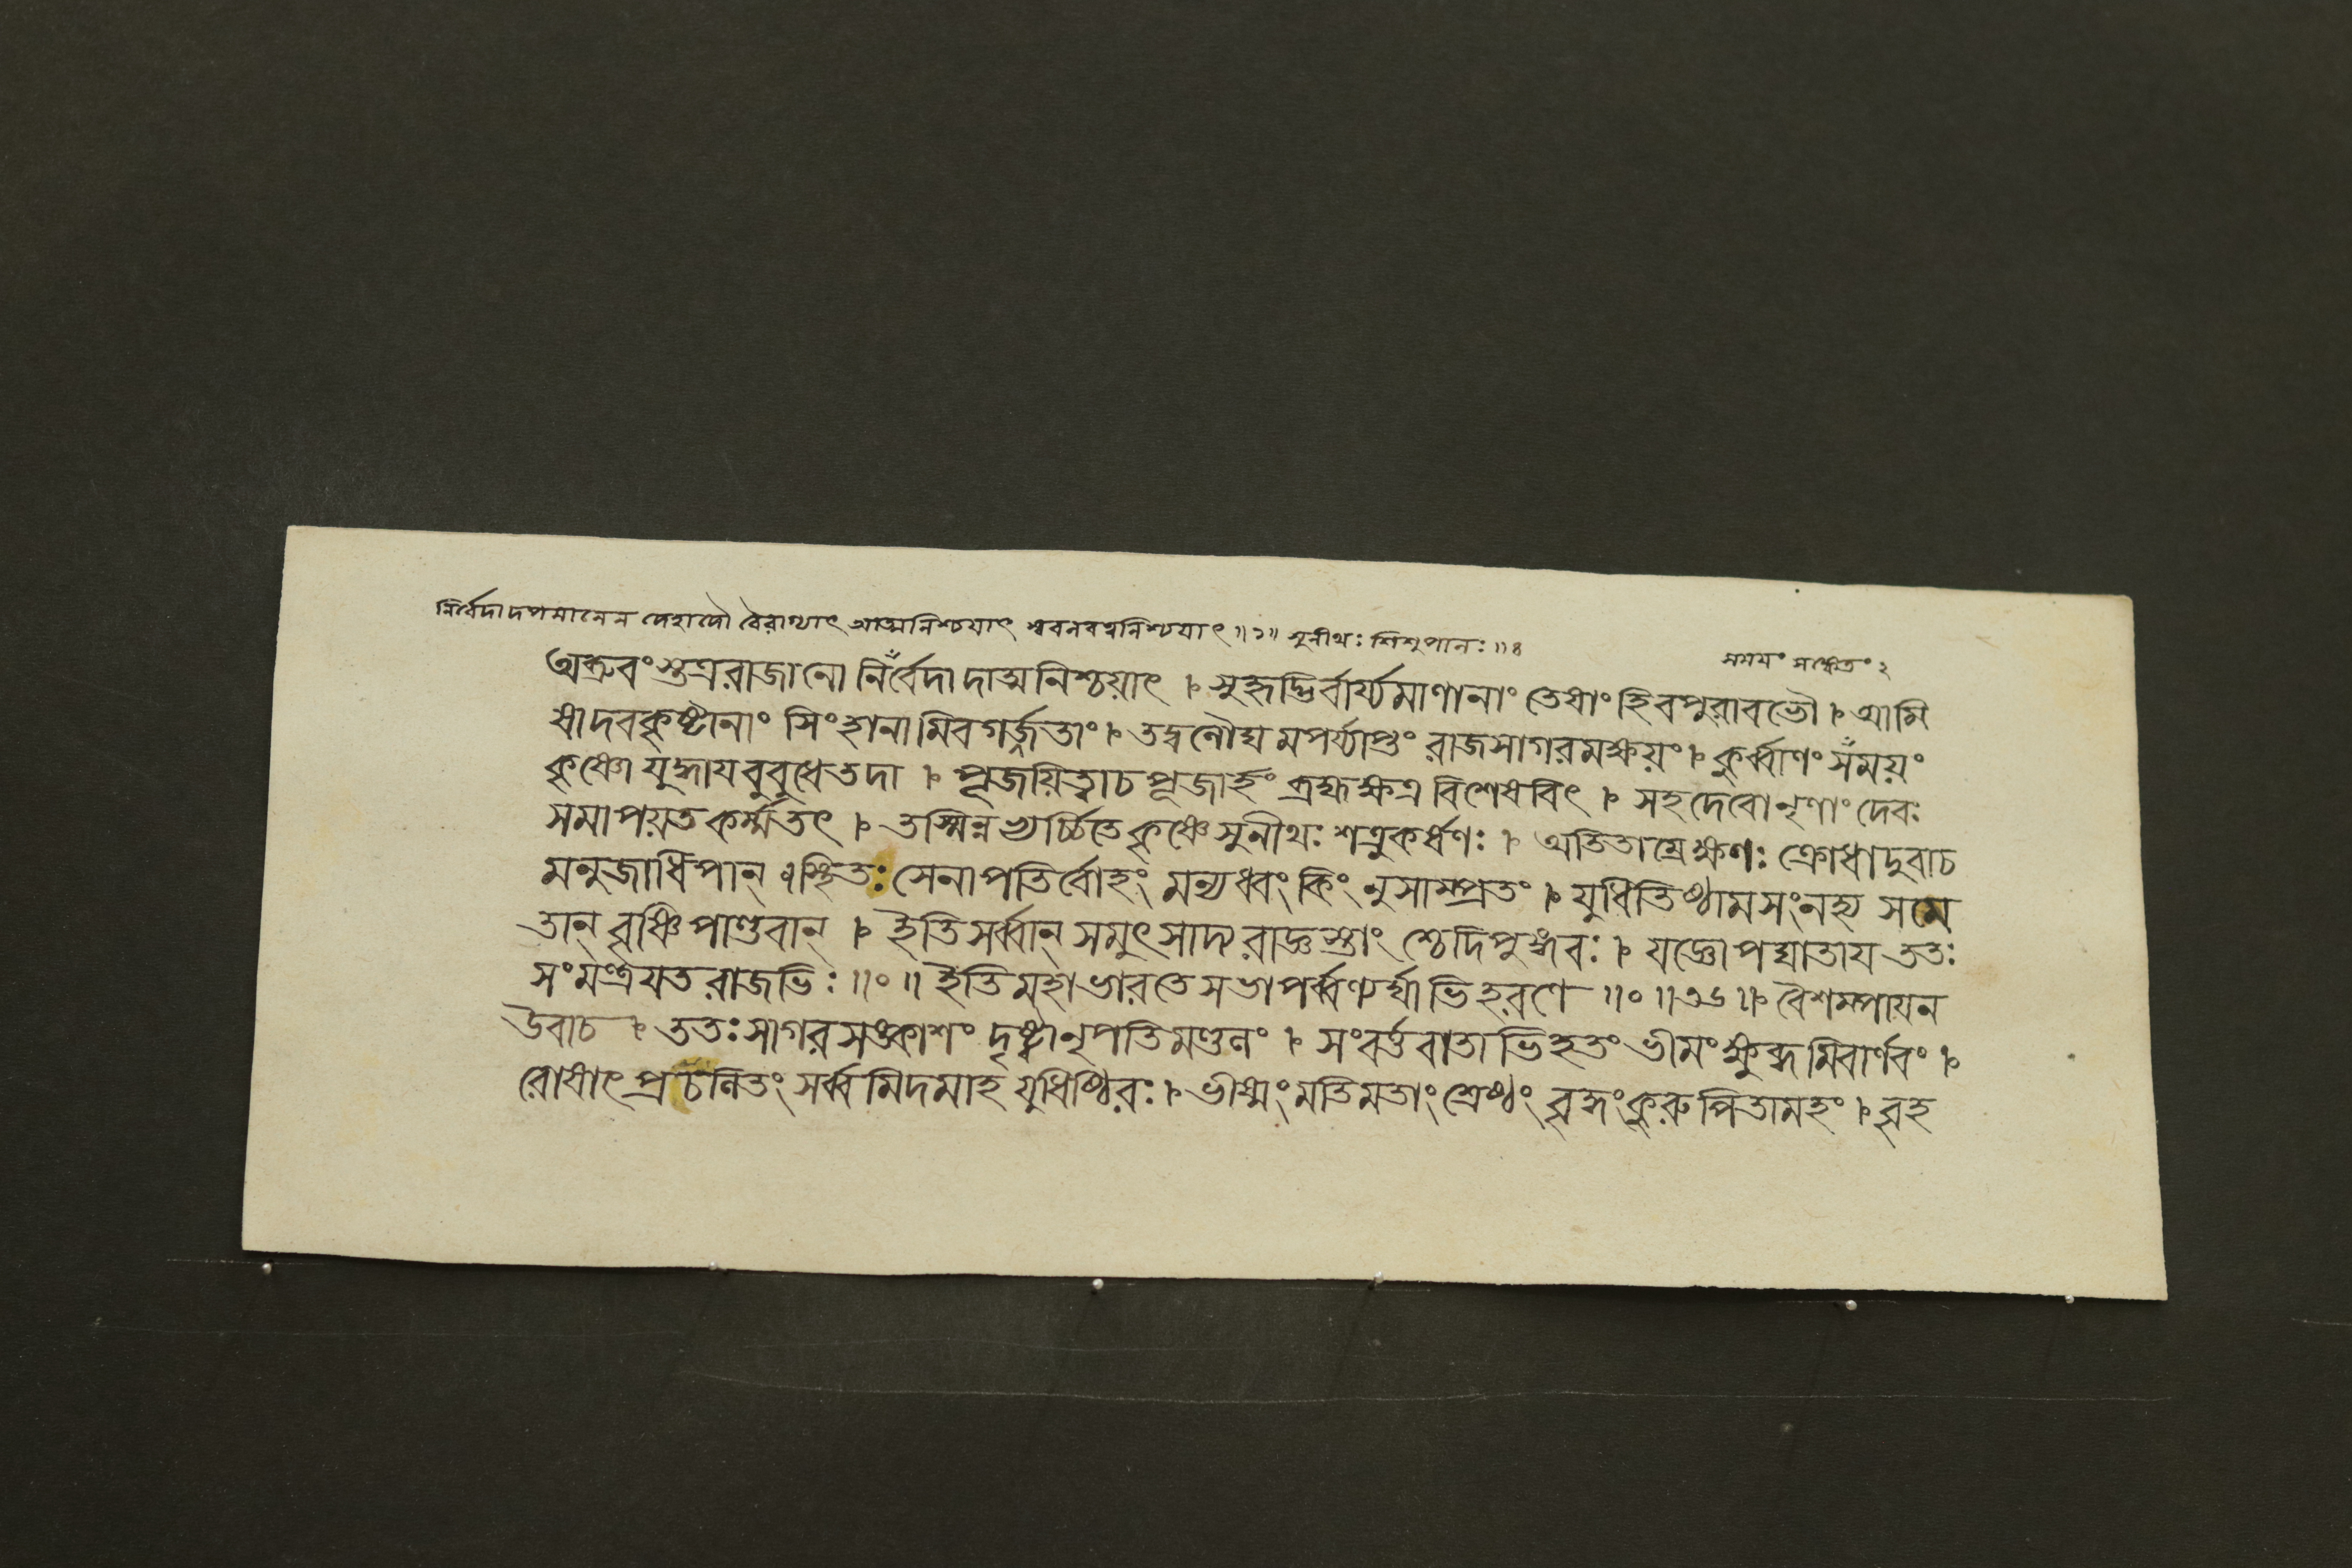 নির্বেদাদপমানেন দেহাদৌ বৈরাগ্যাৎ আত্মনিশ্চয়াৎ স্ববলবত্বনিশ্চয়াৎ ॥১॥ সুনীথঃ শিশুপালঃ ॥৪
সময়ং সঙ্কেতং ২
অব্রুবংস্তত্ররাজানো নির্বেদাদাত্মনিশ্চয়াৎ । সুহৃদ্ভির্বার্য্যমাণানাং তেষাংহিবপুরাবভৌ । আমি
ষাদবকৃষ্টানাং সিংহানামিবগর্জ্জতাং । তদ্বলৌঘমপর্য্যাপ্তং রাজসাগরমক্ষয়ং । কুর্ব্বাণং সময়ং
কৃষ্ণো যুদ্ধায বুবুধেতদা । পূজয়িত্বাচপূজার্হং ব্রহ্মক্ষত্র বিশেষবিৎ । সহদেবোনৃণাং দেবঃ
সমাপয়তকর্ম্মতৎ । তস্মিন্নভ্যর্চ্চিতেকৃষ্ণেসুনীথঃ শত্রুকর্ষণঃ । অতিতাম্রেক্ষণঃ ক্রোধাদুবাচ
মনুজাধিপান্ । স্থিতঃ সেনাপতির্বোহং মন্যধ্বং কিং নুসাম্প্রতং । যুধিতিষ্ঠামসংনহ্য সমে
তান্ বৃষ্ণিপাণ্ডবান্ । ইতিসর্ব্বান্ সমুৎসাদ্য রাজ্ঞস্তাং শ্চেদিপুঙ্গবঃ । যজ্ঞোপঘাতায ততঃ
সংমন্ত্রযত রাজভিঃ ॥০॥ ইতিমহাভারতে সভাপর্ব্বণ্যর্ঘ্যাভিহরণে ॥০॥৩৬॥ বৈশম্পাযন
উবাচ । ততঃ সাগরসঙ্কাশং দৃষ্ট্বানৃপতিমণ্ডলং । সংবর্ত্তবাতাভিহতং ভীমংক্ষুব্ধমিবার্ণবং ।
রোষাৎ প্রচলিতং সর্ব্বমিদমাহ যুধিষ্ঠিরঃ । ভীষ্মং মতিমতাং শ্রেষ্ঠং বৃদ্ধং কুরুপিতামহং । বৃহ